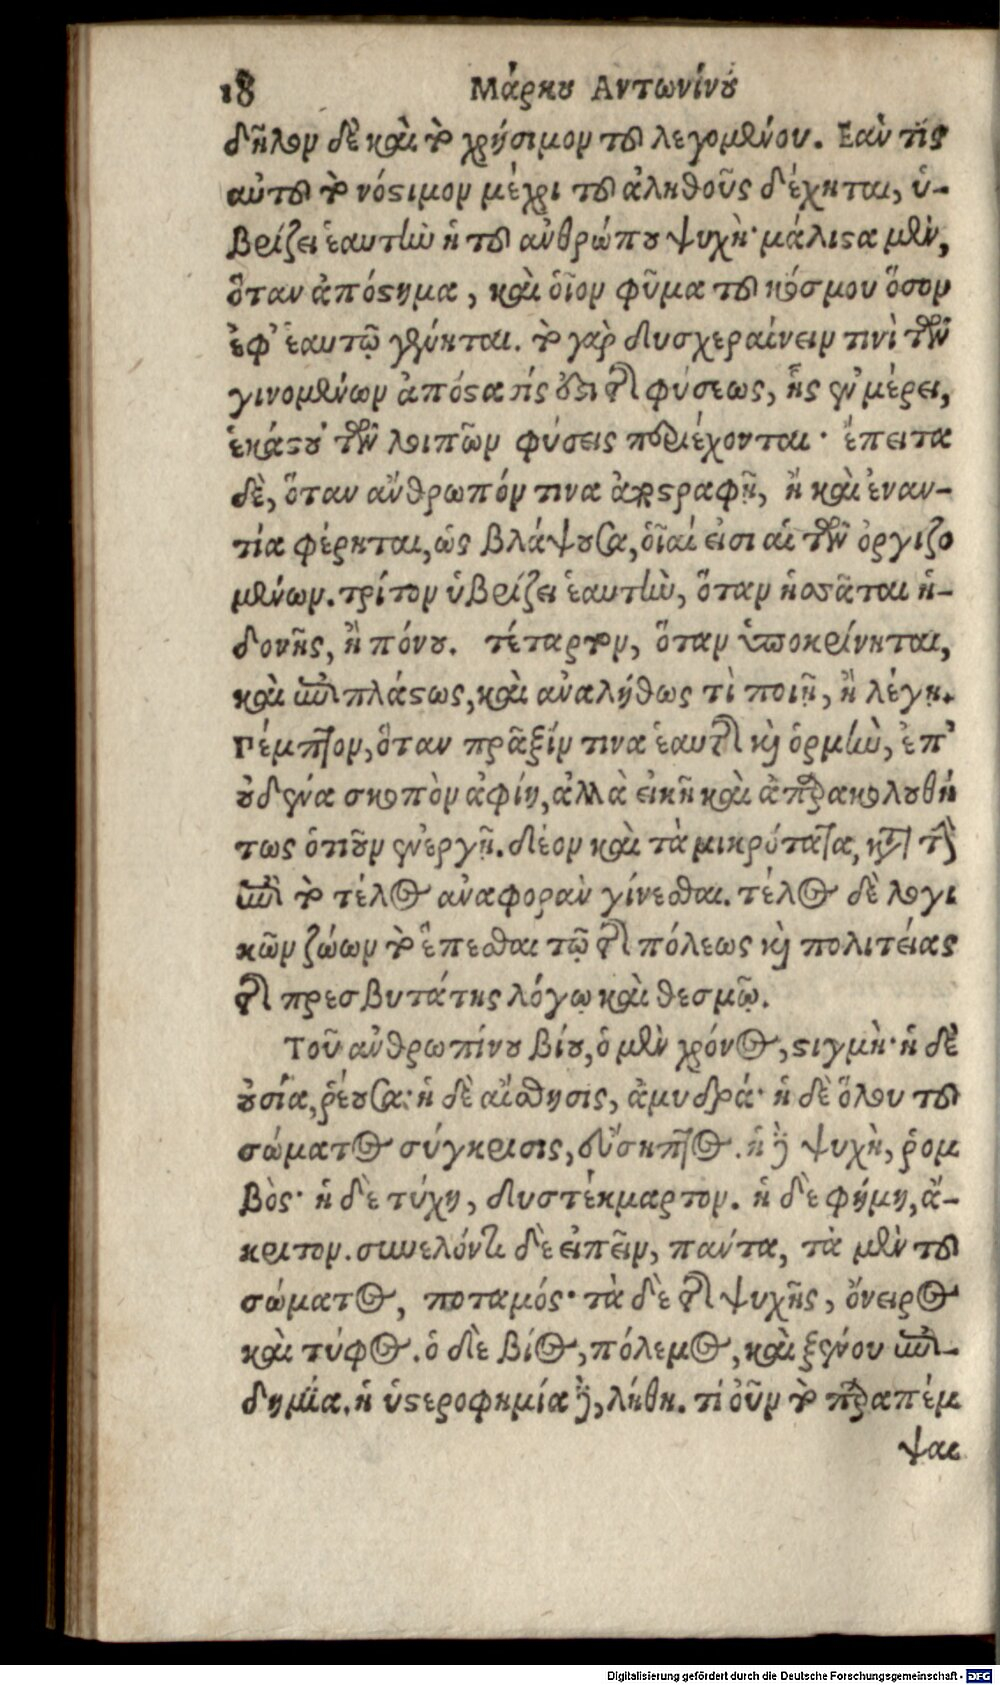 18 Μάρκου Αντωνίνου
δῆλον δὲ καὶ τὸ χρήσιμον τοῦ λεγομένου. Εαν τίς
αὐτοῦ τὸ νόστιμον μέχρι τοῦ ἀληθοῦς δέχηται, ὑ-
βρίζει ἑαυτὴν ἡ τοῦ ἀνθρώπου ψυχὴ· μάλιστα μὲν,
ὅταν ἀπόστημα, καὶ οἷον φῦμα τοῦ κόσμου ὅσον
ἐφ' ἑαυτῷ γένηται. τὸ γὰρ δυσχεραίνειν τινὶ τῶν
γινομένων ἀπόστασίς ἐστι τῆς φύσεως, ἧς ἐν μέρει,
ἑκάστου τῶν λοιπῶν φύσεις περιέχονται· ἔπειτα
δὲ, ὅταν ἄνθρωπόν τινα ἀποστραφῇ, ἢ καὶ ἐναν-
τία φέρηται, ὡς βλάψουσα, οἷαί εἰσι αἱ τῶν ὀργιζο
μένων. τρίτον ὑβρίζει ἑαυτὴν, ὅταν ἡσσᾶται ἡ-
δονῆς, ἢ πόνου. τέταρτον, ὅταν ὑποκρίνηται,
καὶ ἐπιπλάστως, καὶ ἀναλήθως τὶ ποιῇ, ἢ λέγῃ.
Πέμπτον, ὅταν πρᾶξίν τινα ἑαυτῆς καὶ ὁρμὴν, ἐπ'
οὐδένα σκοπὸν ἀφίῃ, ἀλλὰ εἰκῆ καὶ ἀπαρακολουθή
τως ὁτιοῦν ἐνεργῇ. δέον καὶ τὰ μικρότατα, κατὰ τὴν
ἐπὶ τὸ τέλος ἀναφορὰν γίνεσθαι. τέλος δὲ λογι
κῶν ζώων τὸ ἕπεσθαι τῷ τῆς πόλεως καὶ πολιτείας
τῆς πρεσβυτάτης λόγῳ καὶ θεσμῷ.
Τοῦ ἀνθρωπίνου βίου, ὁ μὲν χρόνος, στιγμὴ· ἡ δὲ
οὐσία, ῥέουσα· ἡ δὲ αἴσθησις, ἀμυδρά· ἡ δὲ ὅλου τοῦ
σώματος σύγκρισις, εὔσηπτος. ἡ δὲ ψυχὴ, ῥομ
βὸς· ἡ δὲ τύχη, δυστέκμαρτον. ἡ δὲ φήμη, ἄ-
κριτον. συνελόντι δὲ εἰπεῖν, πάντα, τὰ μὲν τοῦ
σώματος, ποταμός· τὰ δὲ τῆς ψυχῆς, ὄνειρος
καὶ τύφος. ὁ δὲ βίος, πόλεμος, καὶ ξένου ἐπι-
δημία. ἡ ὑστεροφημία δὲ, λήθη. τί οὖν τὸ παραπέμ
ψαι
Digitalisierung gefördert durch die Deutsche Forschungsgemeinschaft - DFG